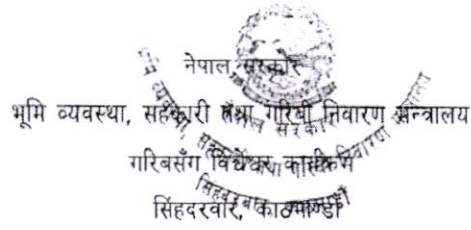 नेपाल सरकार
भूमि व्यवस्था, सहकारी तथा गरिबी निवारण मन्त्रालय
गरिबसँग विश्वेश्वर कार्यक्रम
सिंहदरवार, काठमाण्डौ